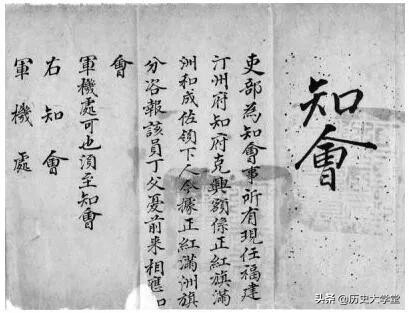 知會
吏部為知會事所有現任福建
汀州府知府克興額係正紅旗滿
洲和成佐領下人今據正紅滿洲旗
分咨報該員丁父憂前来相應口
會
軍機處可也須至知會
右知會
軍機處
头条 @历史大学堂